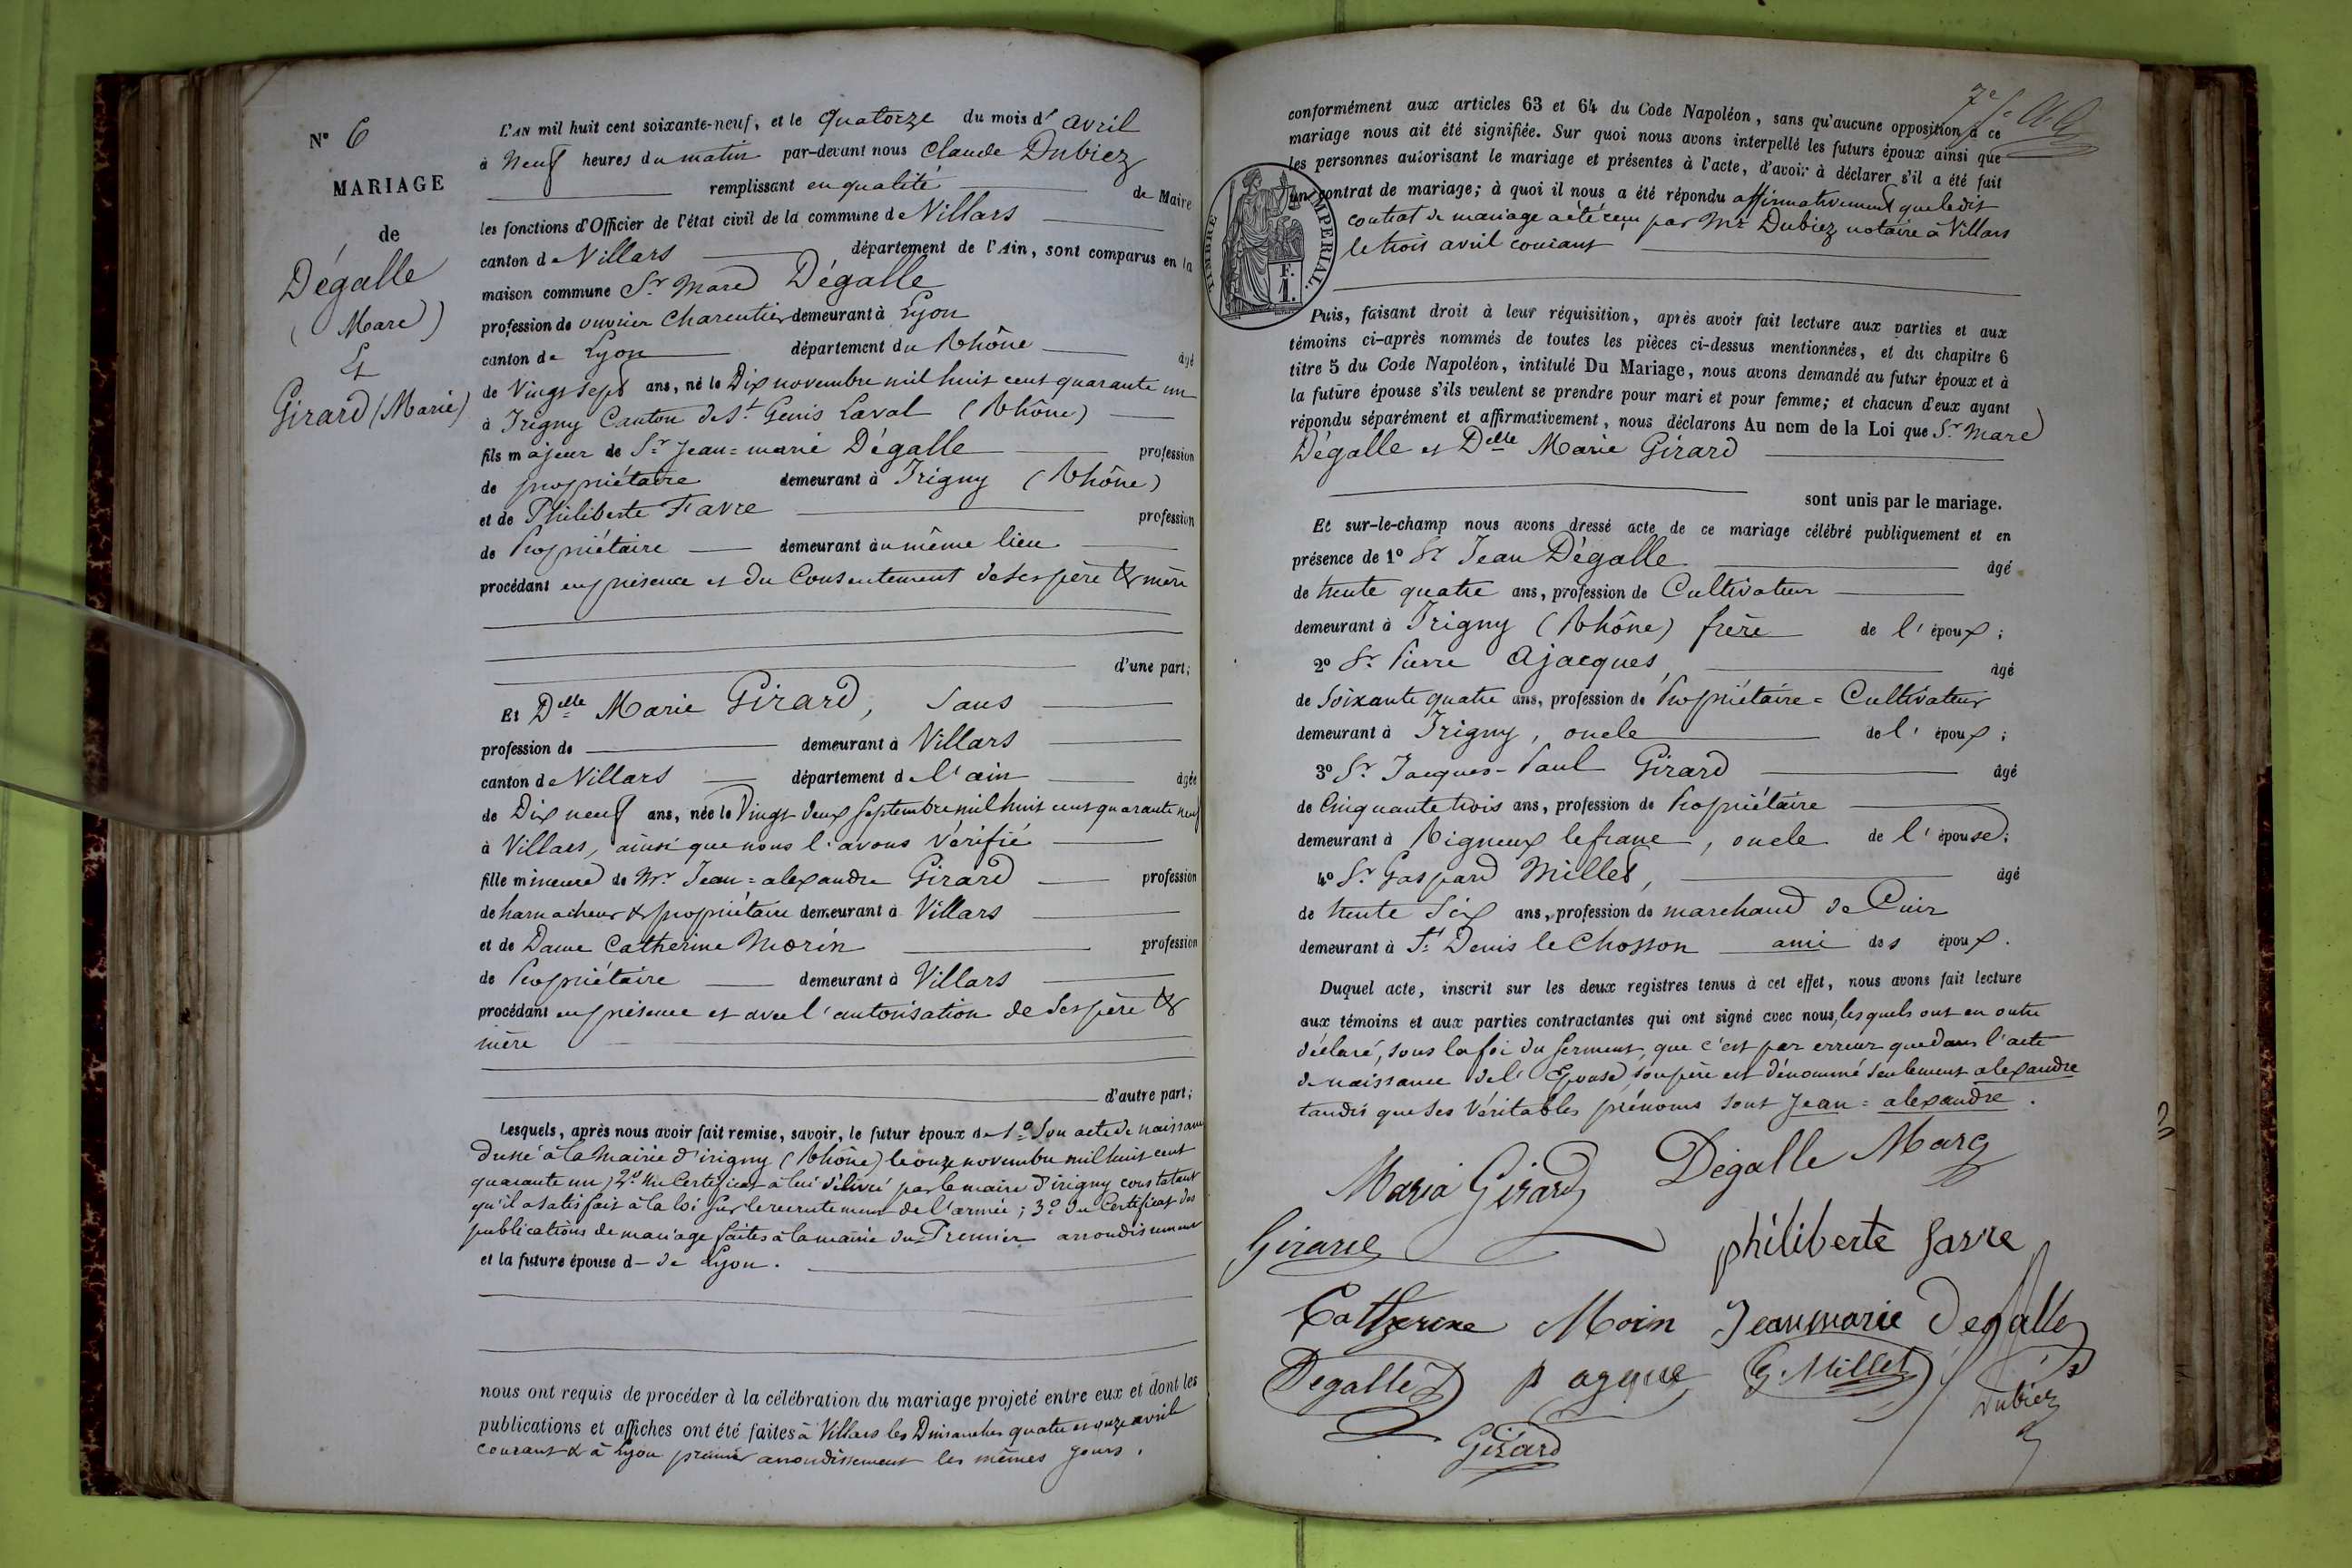 N° 6
MARIAGE
de
Dégalle
(Marc)
Et
Girard (Marie)
L'AN mil huit cent soixante-neuf, et le quatorze du mois d' avril
à Neuf heures du matin par-devant nous Claude Dubiez
remplissant en qualité de Maire
les fonctions d'Officier de l'état civil de la commune de Villars
canton de Villars département de l'Ain, sont comparus en la
maison commune Sr Marc Dégalle
profession de ouvrier Charentier demeurant à Lyon
canton de Lyon département du Rhône âgé
de Vingt sept ans, né le Dix novembre mil huit cent quarante un
à Irigny Canton de St Genis Laval (Rhône)
fils majeur de Sr Jean=marie Dégalle profession
de propriétaire demeurant à Irigny (Rhône)
et de Philiberte Favre profession
de Propriétaire demeurant au même lieu
procédant en présence et du Consentement de ses père & mère
d'une part;
Et Delle Marie Girard, Sans
profession de demeurant à Villars
canton de Villars département de l'ain âgée
de Dix neuf ans, née le Vingt deux Septembre mil huit cent quarante neuf
à Villars, ainsi que nous l'avons Vérifié
fille mineure de Mr Jean=alexandre Girard profession
de harnacheur & propriétaire demeurant à Villars
et de Dame Catherine Morin profession
de Propriétaire demeurant à Villars
procédant en présence et avec l'autorisation de Ses père &
mère
d'autre part;
Lesquels, après nous avoir fait remise, savoir, le futur époux de 1° Son acte de naissance
dressé à la Mairie d'irigny (Rhône) le onze novembre mil huit cent
quarante un; 2° un Certificat à lui délivré par le maire d'irigny constatant
qu'il a satisfait à la loi sur le recrutement de l'armée; 3° du Certificat des
publications de mariage faites à la mairie du Premier arrondissement
et la future épouse d– de Lyon.
nous ont requis de procéder à la célébration du mariage projeté entre eux et dont les
publications et affiches ont été faites à Villars les Dimanches quatre et onze avril
courant & à Lyon premier arrondissement les mêmes jours.
conformément aux articles 63 et 64 du Code Napoléon, sans qu'aucune opposition à ce
mariage nous ait été signifiée. Sur quoi nous avons interpellé les futurs époux ainsi que
les personnes autorisant le mariage et présentes à l'acte, d'avoir à déclarer s'il a été fait
un contrat de mariage; à quoi il nous a été répondu affirmativement que ledit
contrat de mariage a été reçu par Mr Dubiez notaire à Villars
le trois avril courant
TIMBRE IMPERIAL.
F.
1.
Puis, faisant droit à leur réquisition, après avoir fait lecture aux parties et aux
témoins ci-après nommés de toutes les pièces ci-dessus mentionnées, et du chapitre 6
titre 5 du Code Napoléon, intitulé Du Mariage, nous avons demandé au futur époux et à
la future épouse s'ils veulent se prendre pour mari et pour femme; et chacun d'eux ayant
répondu séparément et affirmativement, nous déclarons Au nom de la Loi que Sr Marc
Dégalle et Delle Marie Girard
sont unis par le mariage.
Et sur-le-champ nous avons dressé acte de ce mariage célébré publiquement et en
présence de 1° Sr Jean Dégalle âgé
de trente quatre ans, profession de Cultivateur
demeurant à Irigny (Rhône) frère de l'époux;
2° Sr Pierre Ajacques, âgé
de Soixante quatre ans, profession de Propriétaire=Cultivateur
demeurant à Irigny, oncle de l'époux;
3° Sr Jacques-Paul Girard âgé
de Cinquante trois ans, profession de Propriétaire
demeurant à Rigneux le franc, oncle de l'épouse;
4° Sr Gaspard Millet, âgé
de trente Six ans, profession de marchand de Cuir
demeurant à St Denis le Chosson ami des époux.
Duquel acte, inscrit sur les deux registres tenus à cet effet, nous avons fait lecture
aux témoins et aux parties contractantes qui ont signé avec nous, lesquels ont en outre
déclaré, sous la foi du Serment, que c'est par erreur que dans l'acte
de naissance de l'Epouse, son père est dénommé seulement alexandre
tandis que ses Véritables prénoms sont Jean=alexandre.
Maria Girard Dégalle Marc
Girard philiberte favre
Catherine Morin Jeanmarie Degalle
Degalle G. Millet
Dubiez
Girard